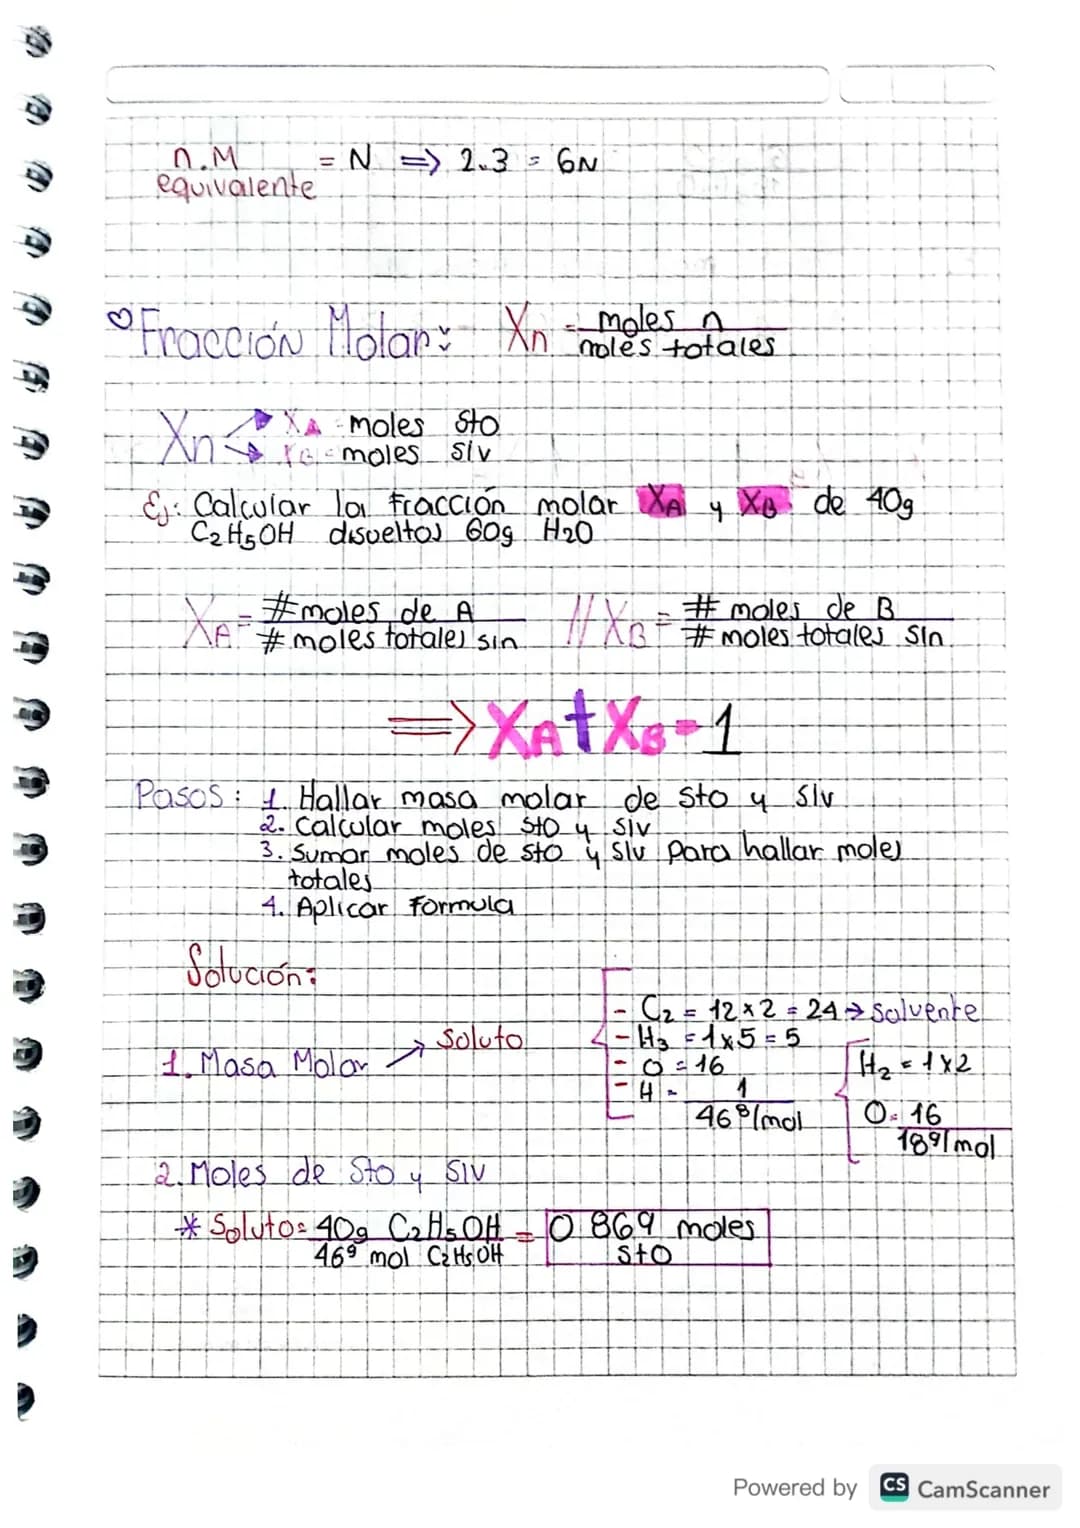 n.M = N => 2.3 = 6N
equivalente
♡Fracción Molar: Xn = moles n
moles totales
Xn → XA = moles sto
→ XB = moles slv
Ej: Calcular la fracción molar XA y XB de 40g
C2H5OH disueltos 60g H2O
XA = #moles de A // XB = # moles de B
# moles totales sln # moles totales sln
=> XA + XB = 1
Pasos: 1. Hallar masa molar de sto y slv
2. Calcular moles sto y slv
3. Sumar moles de sto y slv para hallar moles
totales
4. Aplicar Formula
Solución:
- C2 = 12x2 = 24 → Solvente
1. Masa Molar → Soluto
- H3 = 1x5 = 5
- O = 16
- H = 1
46 g/mol
H2 = 1x2
O = 16
18g/mol
2. Moles de Sto y Slv
* Soluto: 40g C2H5OH = 0 869 moles
46g mol C2H5OH sto
Powered by CS CamScanner